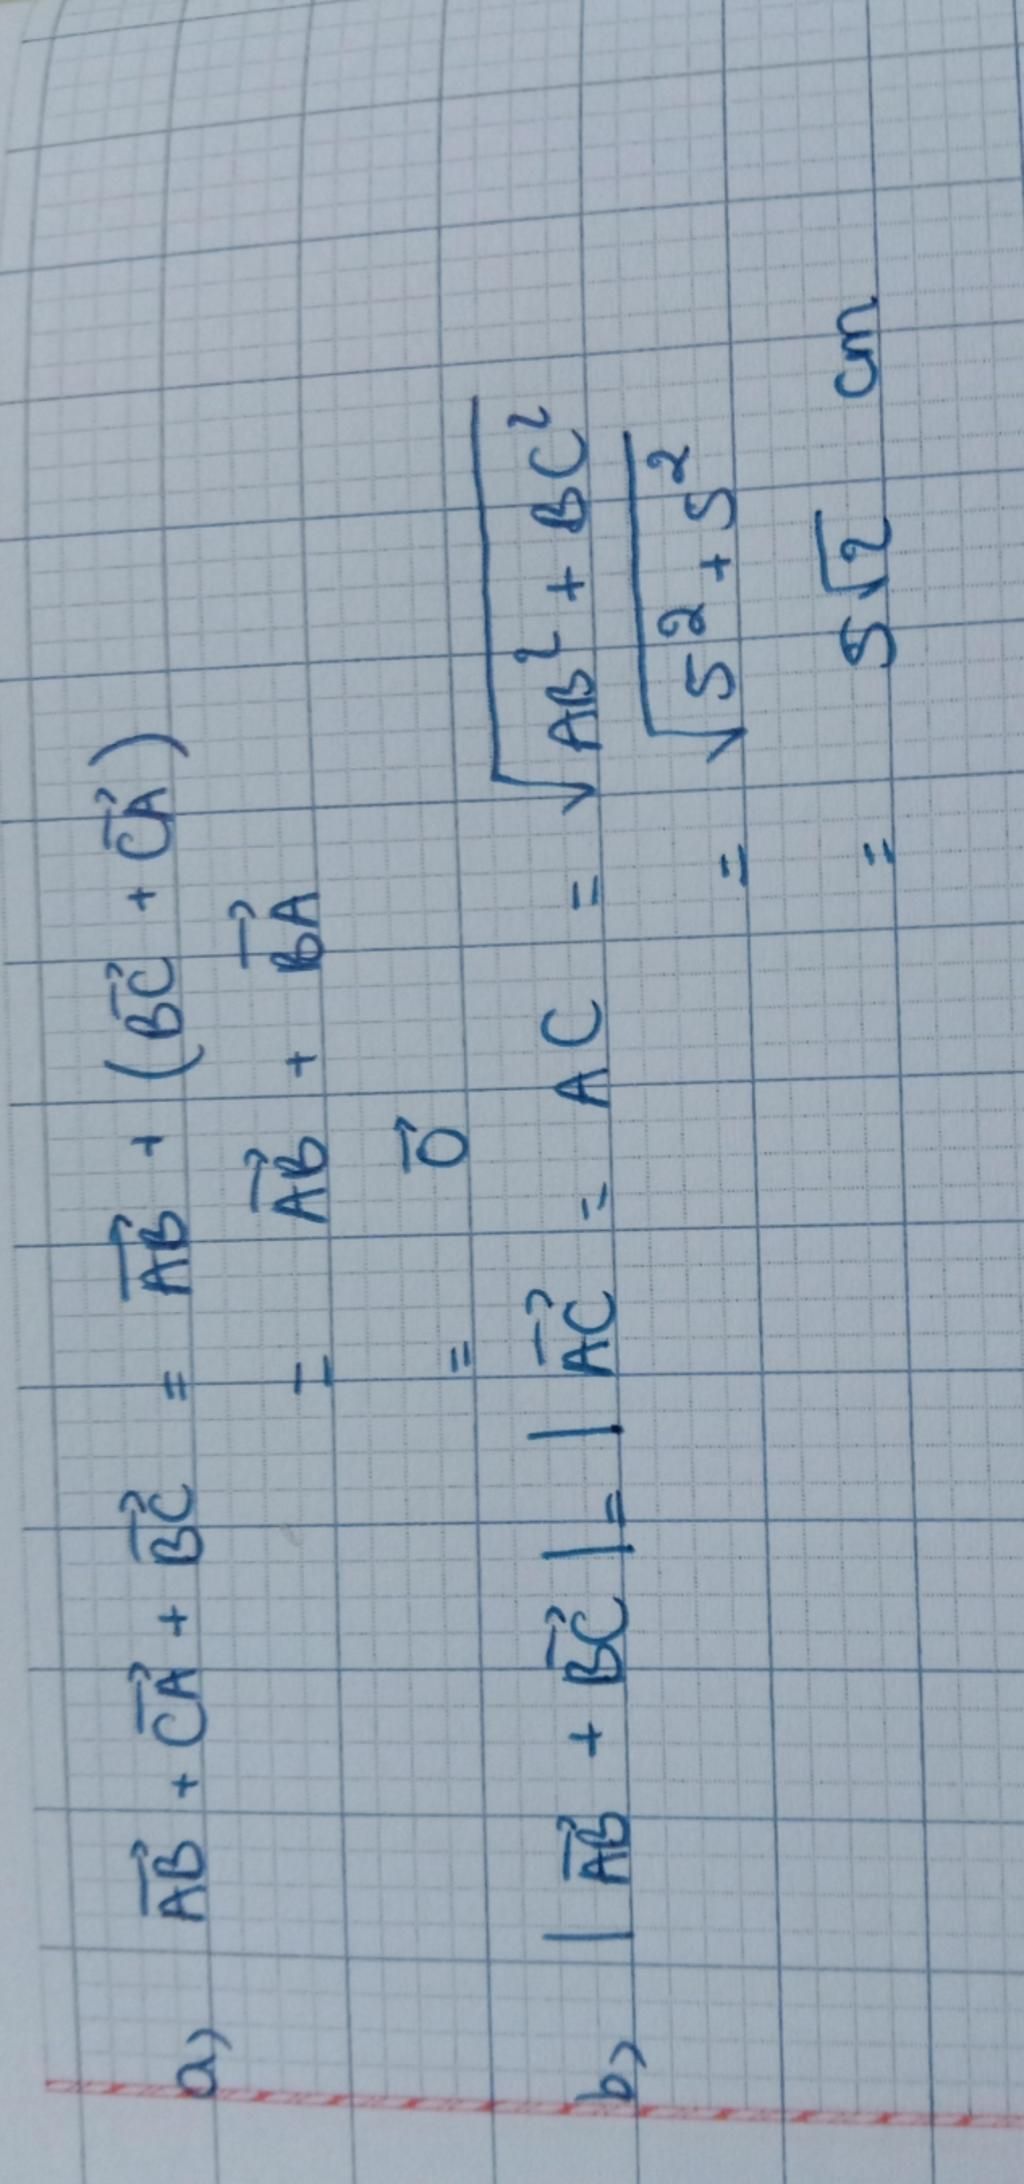 a) $\overrightarrow{AB} + \overrightarrow{CA} + \overrightarrow{BC} = \overrightarrow{AB} + (\overrightarrow{BC} + \overrightarrow{CA})$
$= \overrightarrow{AB} + \overrightarrow{BA}$
$= \overrightarrow{O}$
b) $| \overrightarrow{AB} + \overrightarrow{BC} | = | \overrightarrow{AC} = AC = \sqrt{AB^2 + BC^2}$
$= \sqrt{5^2 + 5^2}$
$= 5\sqrt{2}$ cm